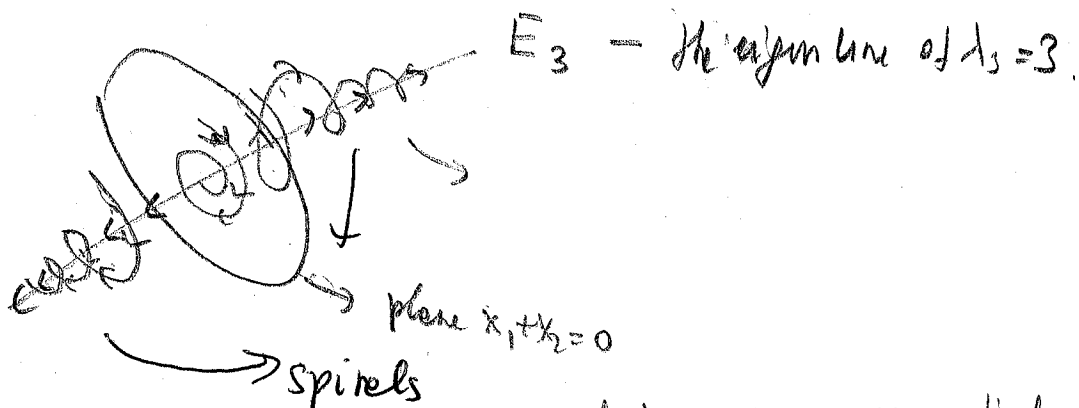 E₃ – the eigen line of λ₃ = 3.
plane x₁+x₂=0
spirels